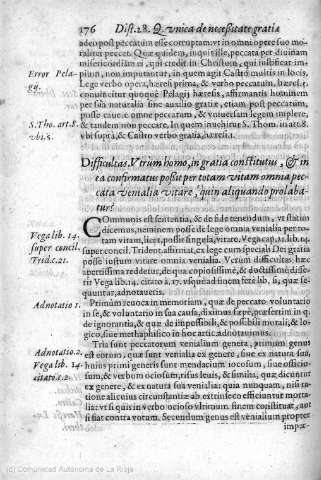 176 Dist. 28. Q. vnica de necessitate gratiæ
adeo post peccatum esse corruptam, vt in omni opere suo mo-
raliter peccet. Quæ quidem, inquit ille, peccata per diuinam
misericordiam ei, qui credit in Christum, qui iustificat im-
pium, non imputantur, in quem agit Castro multis in locis.
Error Pela-
gij.
Lege verbo opera, hæresi prima, & verbo peccatum,
conuincitur quoque Pelagij hæresis, affirmantis hominem
per sua naturalia sine auxilio gratiæ, etiam post peccatum,
posse cauere omne peccatum, & vniuersam legem implere,
S. Tho. art. 8.
vbi. s.
& tandem non peccare. In quem inuehitur S. Thom. in art. 8.
vbi supra, & Castro verbo gratia, hæresi 1.
Difficultas. Vtrum homo, in gratia constitutus, & in
ea confirmatus possit per totam vitam omnia pec-
cata venialia vitare, quin aliquando prolaba-
tur?
COmmunis est sententia, & de fide tenendum, vt statim
dicemus, neminem posse de lege omnia venialia per to-
Vega lib. 14.
super concil.
Trid. c. 21.
tam vitam, licet possit singula, vitare. Vega cap. 21. lib. 14.
super concil. Trident. affirmat, ex lege cum speciali Dei gratia
posse iustum vitare omnia venialia. Verum difficultas hæc
apertissima redditur, de qua copiosissimè, & doctissimè disse-
rit Vega lib. 14. citato à 17. vsque ad finem ferè lib. si, quæ se-
quuntur, adnotaueris.
Adnotatio 1.
Primum: reuoca in memoriam, quæ de peccato voluntario
in se, & voluntario in sua causa, diximus sæpè, præsertim in q.
de ignorantia, & quæ de impossibili, & possibili morali, & lo-
gico, siue metaphisico in hoc artic. adnotauimus.
Adnotatio. 2.
Vega lib. 14.
citato c. 2.
Tria sunt peccatorum venialium genera, primum genus
est eorum, quæ sunt venialia ex genere, siue ex natura sua,
huius primi generis sunt mendacium iocosum, siue officio-
sum, & verbum ociosum, risus leuis, & similia, quæ dicuntur
ex genere, & ex natura sua venialia: quia nunquam, nisi ra-
tione alicuius circumstantiæ ab extrinseco efficiuntur morta-
lia: vt si quis in verbo ocioso vltimum finem constituat, aut
si fiat contra votum. Secundum genus est venialium propter
impæ-
(c) Comunidad Autónoma de La Rioja